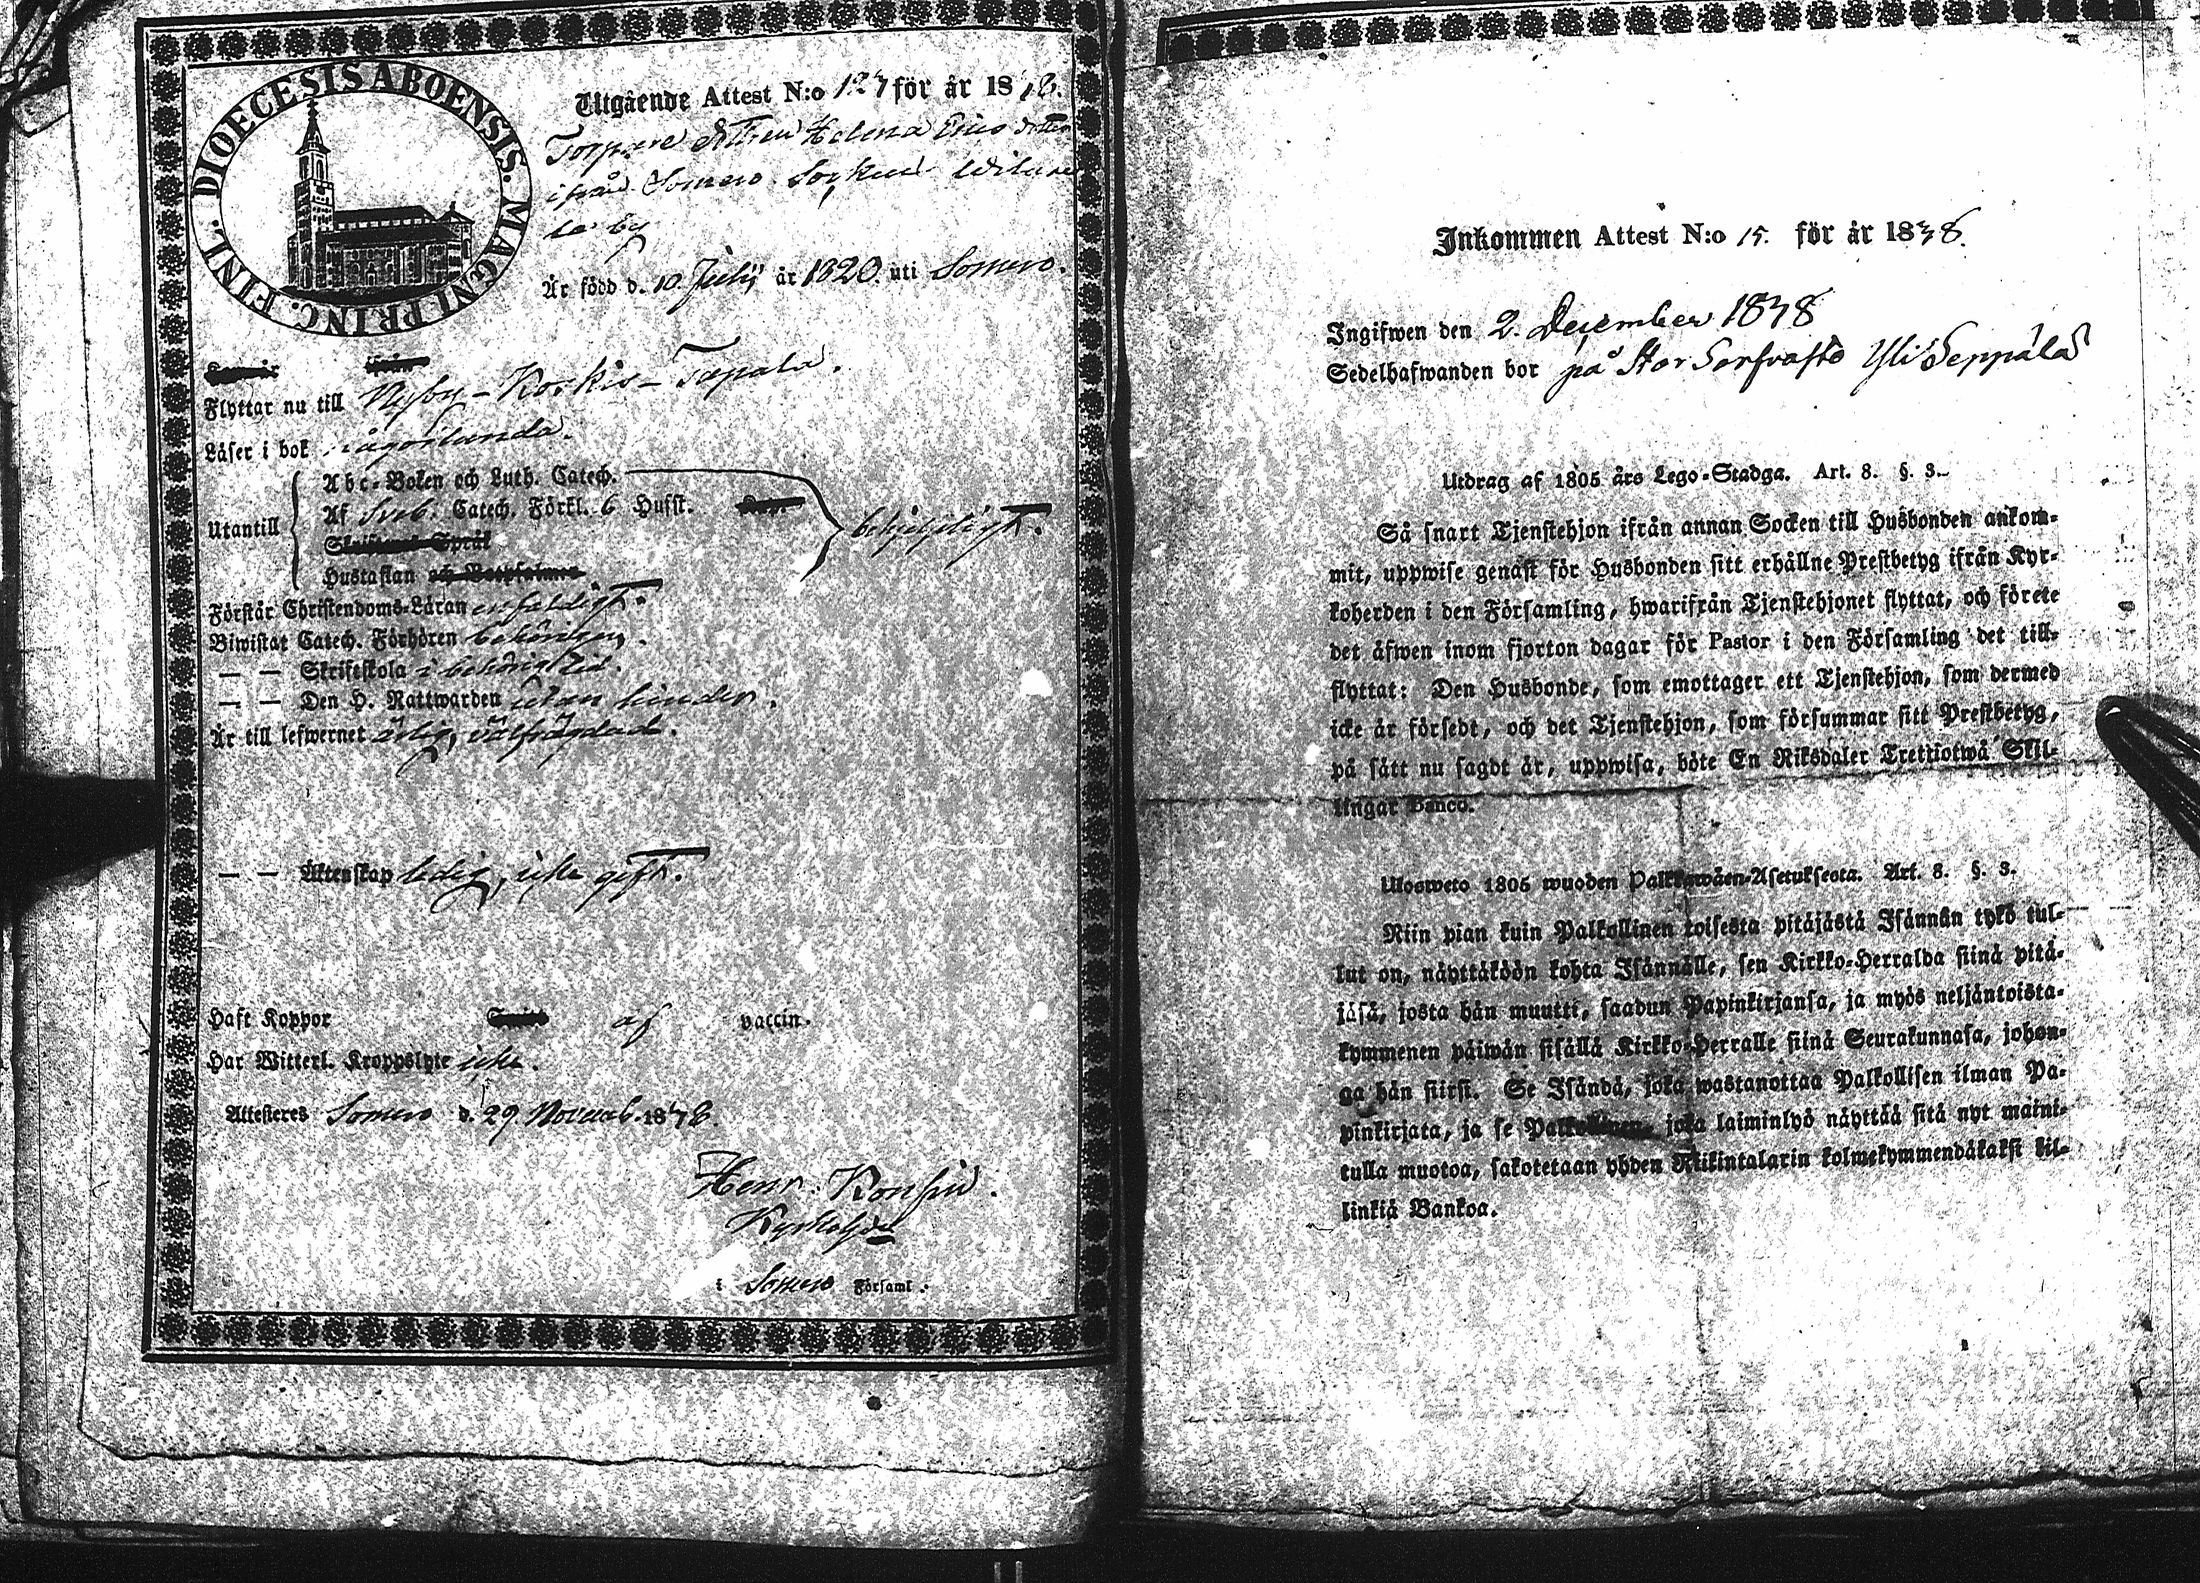 DIOECESIS ABOENSIS. MAGNI PRINC. FINL.
Utgående Attest N:o 127 för år 1848.
Torpare dottren Helena Ericsdotter
ifrån Somero Socken
la by
Är född d. 10 Julij år 1820. uti Somero.
Flyttar nu till Nyby-Koskis-Tapala.
Läser i bok någorlunda.
Utantill
Abc-Boken och Luth. Catech.
Af Sveb. Catech. Förkl. 6 Hufst.
behjelpligt.
Skriftenes Språk
Hustaflan och Botpsalmen
Förstår Christendoms-Läran enfaldigt.
Biwistat Catech. Förhören behörigen.
— — Skriftskola i behörig tid.
— — Den H. Nattwarden utan hinder.
Är till lefwernet ärlig, välfrägdad.
— — Äktenskap ledig, icke gift.
Haft Koppor af vaccin.
Har Witterl. Kroppslyte icke.
Attesteras Somero d. 29 Novemb. 1848.
Henr. Konsin.
Kyrkoh
i Somero Församl.
Inkommen Attest N:o 15. för år 1848.
Ingifwen den 2. December 1848
Sedelhafwanden bor på Stor Sorfvasto Yli Seppälä
Utdrag af 1805 års Lego-Stadga. Art. 8. §. 3.
Så snart Tjenstehjon ifrån annan Socken till Husbonden ankom-
mit, uppwise genast för Husbonden sitt erhållne Prestbetyg ifrån Kyr-
koherden i den Församling, hwarifrån Tjenstehjonet flyttat, och förete
det äfwen inom fjorton dagar för Pastor i den Församling det till-
flyttat: Den Husbonde, som emottager ett Tjenstehjon, som dermed
icke är försedt, och det Tjenstehjon, som försummar sitt Prestbetyg,
på sätt nu sagdt är, uppwisa, böte En Riksdaler Trettiotwå Skil-
lingar Banco.
Ulosweto 1805 wuoden Palkkawäen-Asetuksesta. Art. 8. §. 3.
Niin pian kuin Palkollinen toisesta pitäjästä Isännän tykö tul-
lut on, näyttäköön kohta Isännälle, sen Kirkko-Herralda siinä pitä-
jäsä, josta hän muutti, saadun Papinkirjansa, ja myös neljäntoista-
kymmenen päiwän sisällä Kirkko-Herralle siinä Seurakunnasa, johon-
ga hän siirsi. Se Isändä, joka wastanottaa Palkollisen ilman Pa-
pinkirjata, ja se Palkollinen, joka laiminlyö näyttää sitä nyt maini-
tulla muotoa, sakotetaan yhden Riikintalarin kolmekymmendäkaksi kil-
linkiä Bankoa.